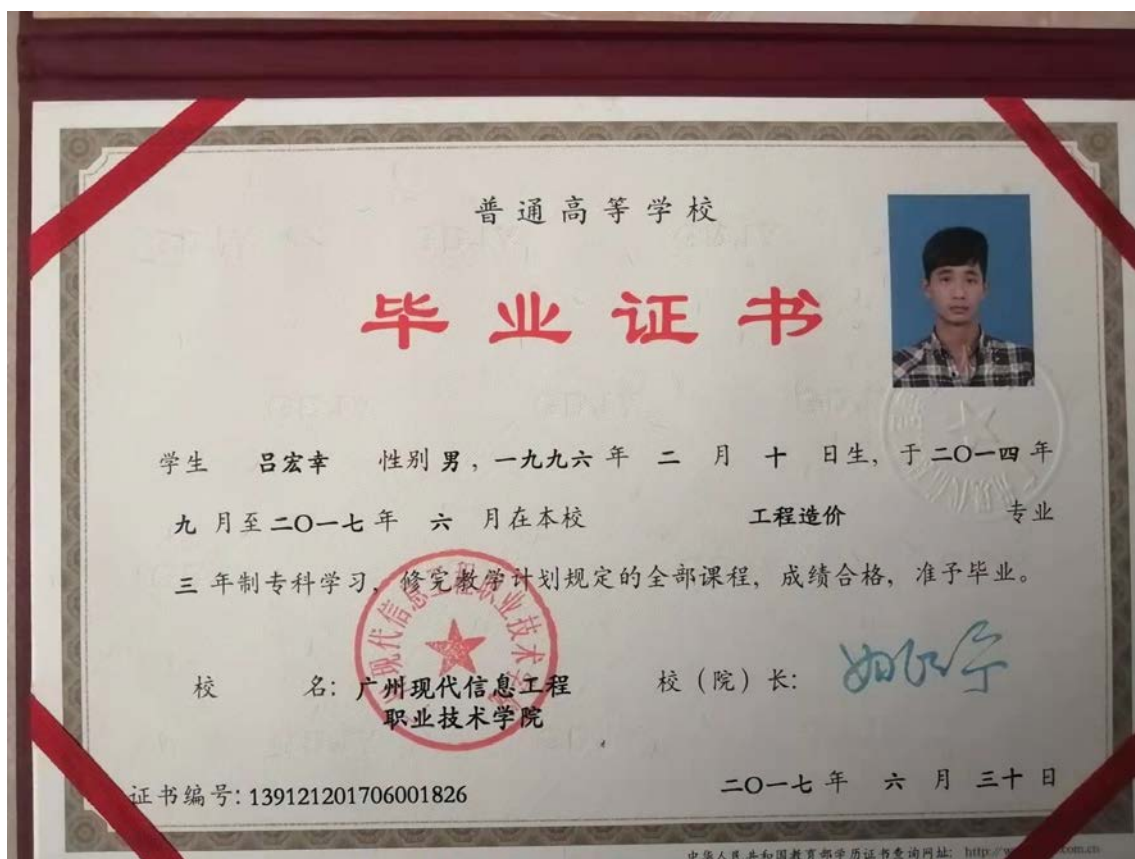 普通高等学校
毕业证书
学生 吕宏幸 性别 男，一九九六 年 二 月 十 日生，于 二〇一四 年
九 月至 二〇一七 年 六 月在本校 工程造价 专业
三 年制专科学习，修完教学计划规定的全部课程，成绩合格，准予毕业。
校 名：广州现代信息工程 校（院）长：
职业技术学院
证书编号：139121201706001826 二〇一七 年 六 月 三十 日
中华人民共和国教育部学历证书查询网址：